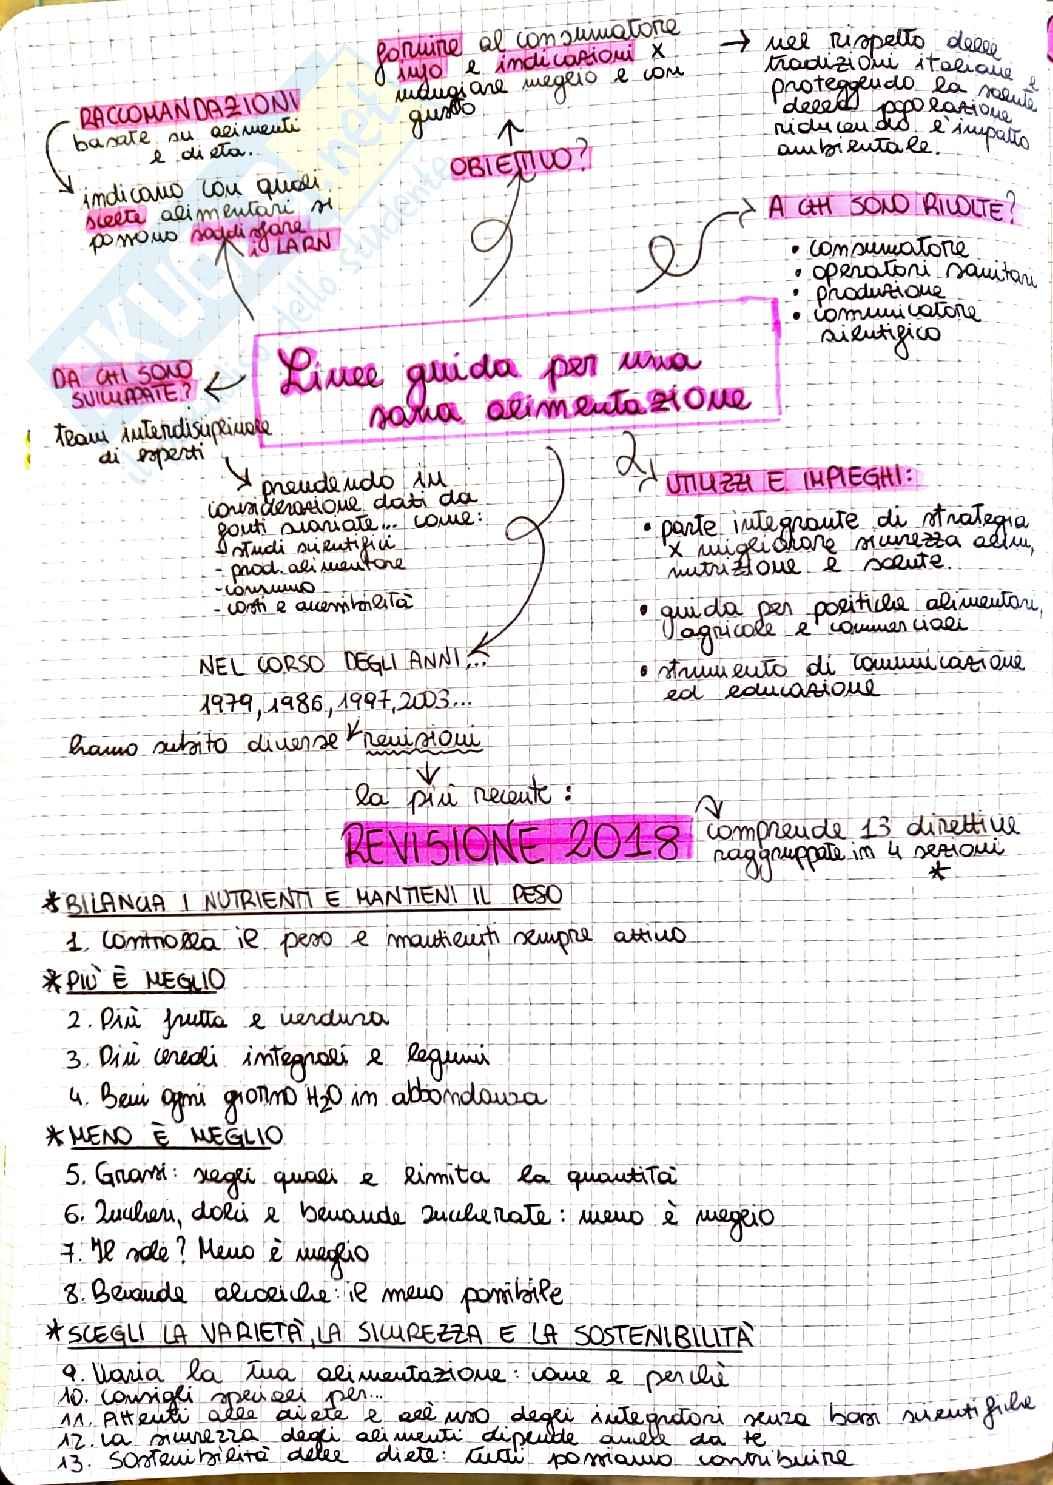 RACCOMANDAZIONI
basate su alimenti
e dieta...
indicano con quali
scelte alimentari si
possono soddisfare
i LARN
fornire al consumatore
info e indicazioni x
mangiare meglio e con
gusto
OBIETTIVO?
→ nel rispetto delle
tradizioni italiane e
proteggendo la salute
della popolazione
riducendo l'impatto
ambientale.
A CHI SONO RIVOLTE?
• consumatore
• operatori sanitari
• produzione
• comunicatore
scientifico
Linee guida per una
sana alimentazione
DA CHI SONO
SVILUPPATE?
team interdisciplinare
di esperti
prendendo in
considerazione dati da
fonti svariate... come:
- studi scientifici
- prod. alimentare
- consumo
- costi e accessibilità
UTILIZZI E IMPIEGHI:
• parte integrante di strategia
x migliorare sicurezza alim,
nutrizione e salute.
• guida per politiche alimentari,
agricole e commerciali
• strumento di comunicazione
ed educazione
NEL CORSO DEGLI ANNI...
1979, 1986, 1997, 2003...
hanno subito diverse revisioni
la più recente:
REVISIONE 2018
comprende 13 direttive
raggruppate in 4 sezioni
*
* BILANCIA I NUTRIENTI E MANTIENI IL PESO
1. Controlla il peso e mantieniti sempre attivo
* PIÙ È MEGLIO
2. Più frutta e verdura
3. Più cereali integrali e legumi
4. Bevi ogni giorno H2O in abbondanza
* MENO È MEGLIO
5. Grassi: scegli quali e limita la quantità
6. Zuccheri, dolci e bevande zuccherate: meno è meglio
7. Il sale? Meno è meglio
8. Bevande alcoliche: il meno possibile
* SCEGLI LA VARIETÀ, LA SICUREZZA E LA SOSTENIBILITÀ
9. Varia la tua alimentazione: come e perché
10. Consigli speciali per...
11. Attenti alle diete e all'uso degli integratori senza basi scientifiche
12. La sicurezza degli alimenti dipende anche da te
13. Sostenibilità delle diete: tutti possiamo contribuire